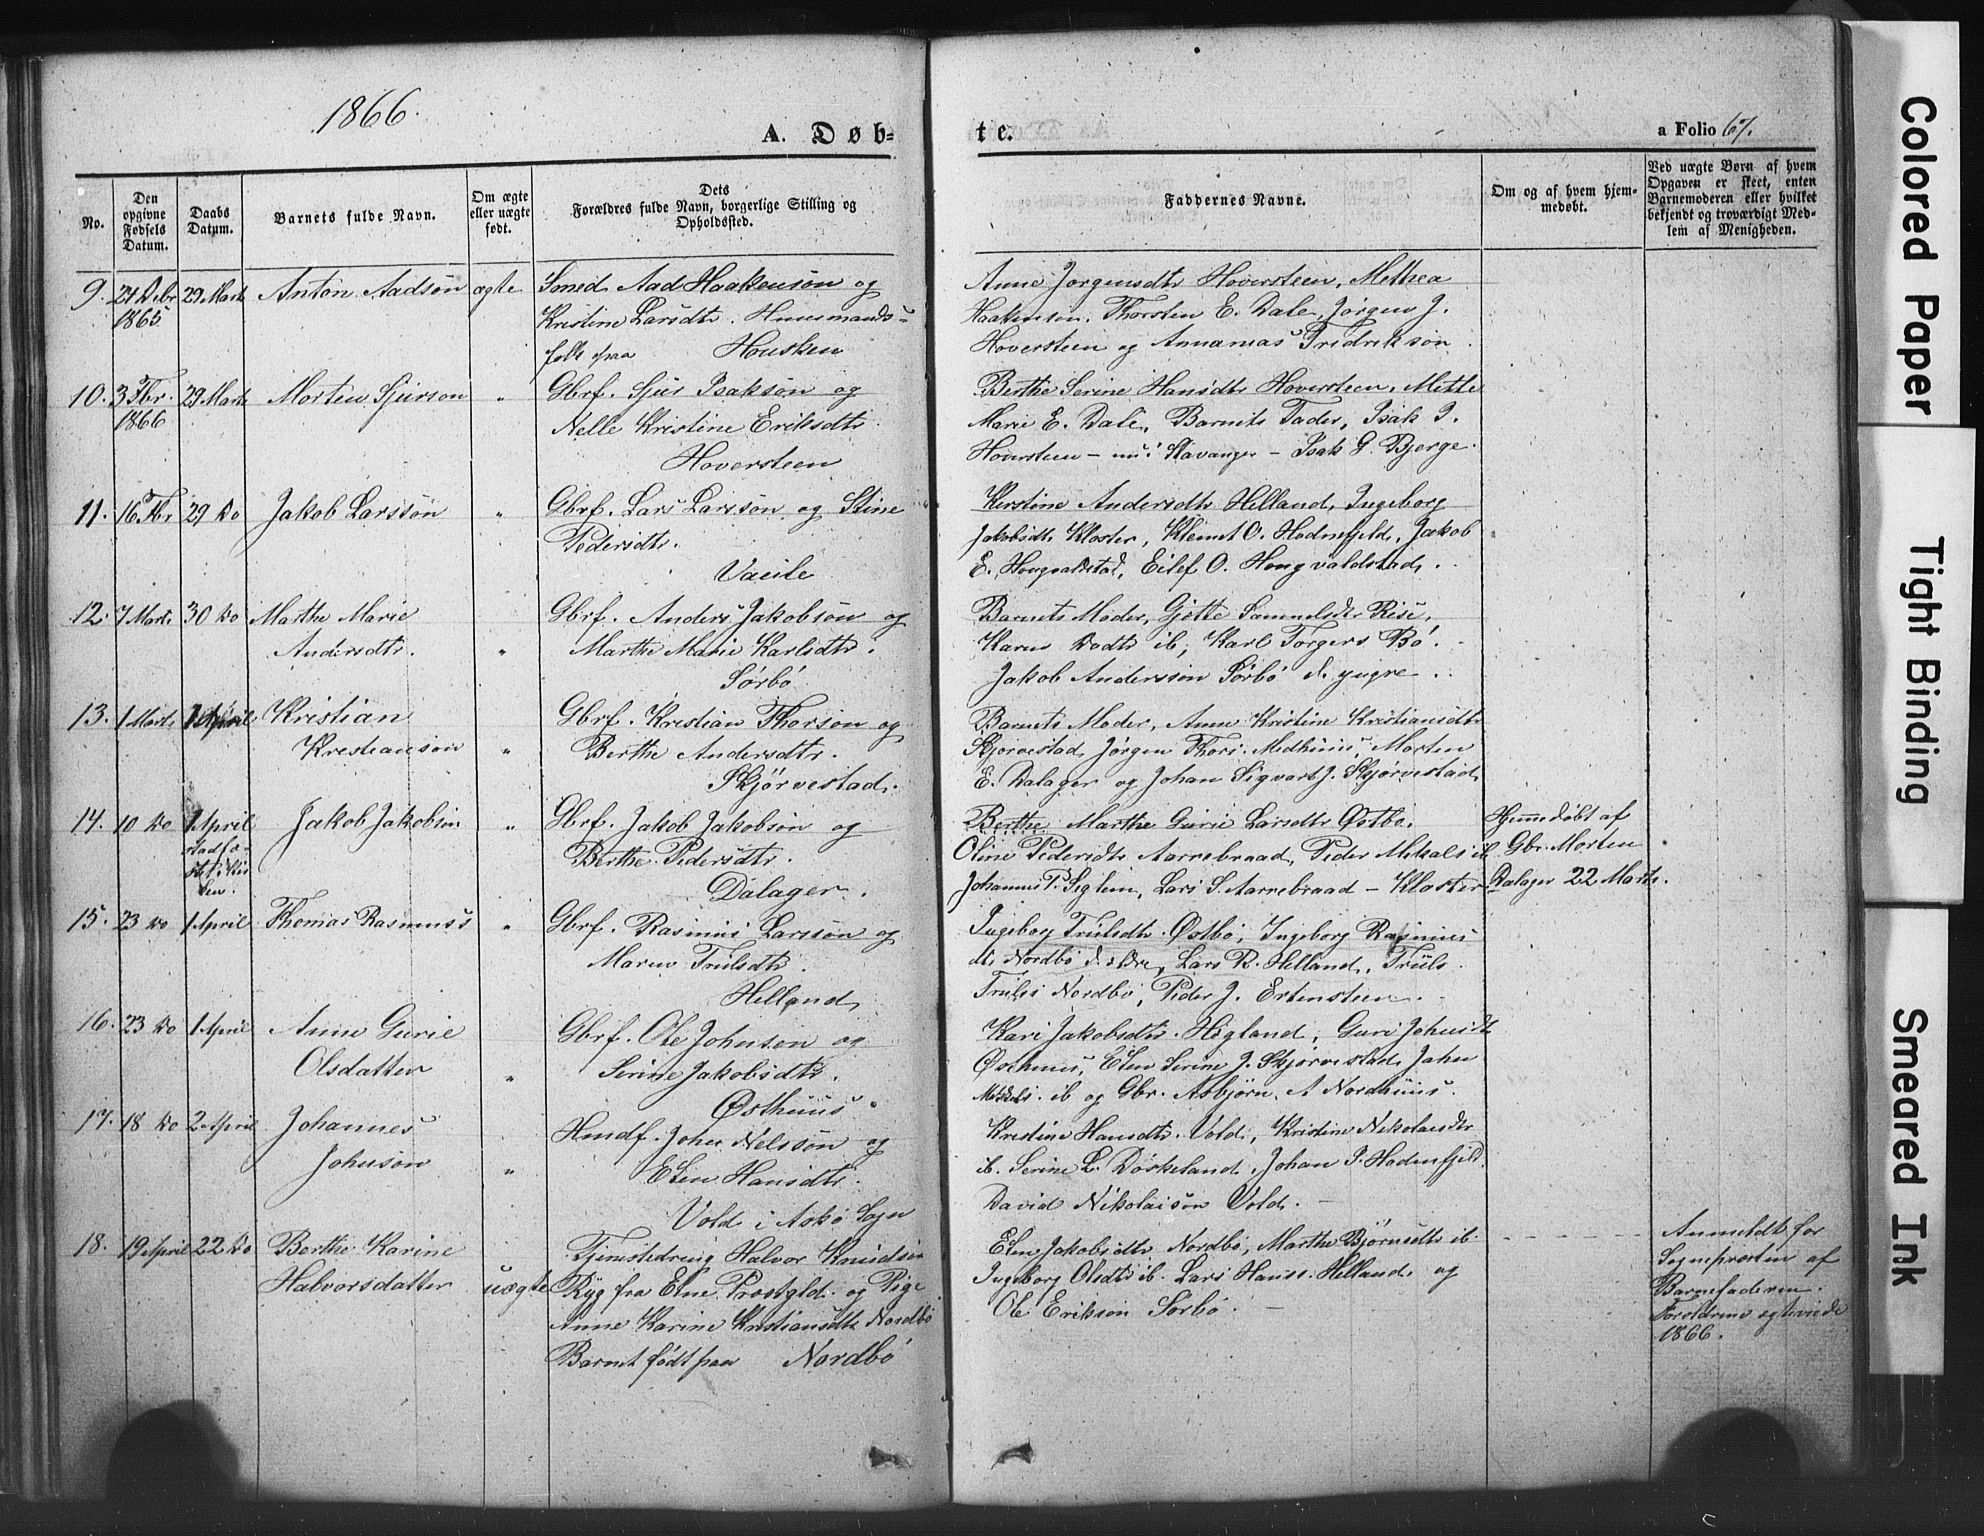 1866.
A. Døb=
te.
a Folio 67.
No.
Den opgivne Fødsels Datum.
Daabs Datum.
Barnets fulde Navn.
Om ægte eller uægte født.
Dets Forældres fulde Navn, borgerlige Stilling og Opholdssted.
Faddernes Navne.
Om og af hvem hjemmedøbt.
Ved uægte Børn af hvem Opgaven er skeet, enten Barnemoderen eller hvilket bekjendt og troværdigt Medlem af Menigheden.
9. 24 Debr 1865. 29 Marts Anton Aadsøn ægte
Smed Aad Haakensøn og
Kristine Larsdtr. Huusmands=
folk paa Housken
Anne Jørgensdtr Hoversteen, Methea
Haakensen. Thorsten E. Dale, Jørgen J.
Hoversteen og Annanias Fredriksøn.
10. 3 Fbr. 1866 29 Marts Morten Sjursøn "
Gbrf. Sjur Isaksøn og
Nelle Kristine Eriksdtr
Hoversteen
Berthe Serine Hansdtr Hoversteen, Mette
Marie E. Dale, Barnets Fader, Isak I.
Hoversteen – nu i Stavanger – Isak G. Bjerge.
11. 16 Fbr 29 Do Jakob Larssøn "
Gbrf. Lars Larssøn og Stine
Pedersdtr.
Vaule
Kirstine Andersdtr Helland, Ingeborg
Jakobsdtr Kloster, Klemet O. Hodnefjeld, Jakob
E. Hougvaldstad, Eilef O. Hougvaldstad.
12. 7 Marts 30 Do Marthe Marie
Andersdtr. "
Gbrf. Anders Jakobsøn og
Marthe Marie Karlsdtr.
Sørbø
Barnets Moder, Gjøtte Samuelsdtr Rise,
Karen Dodtr ib, Karl Torgers Bø.
Jakob Anderssøn Sørbø d. yngre.
13. 1 Marts 1 April Kristian
Kristiansøn "
Gbrf. Kristian Thorsøn og
Berthe Andersdtr.
Skjørvestad.
Barnets Moder, Anne Kristine Kristiansdtr
Skjørvestad, Jørgen Thors. Medhuus, Morten
E. Dalager og Johan Sigvart J. Skjørvestad.
14. 10 Do 1 April
stadfæ-
stet i Kir
ken.
Jakob Jakobsøn "
Gbrf. Jakob Jakobsøn og
Berthe Pedersdtr.
Dalager.
Berthe Marthe Gurie Larsdtr Østbø.
Oline Pedersdtr Aarrebraad, Peder Mikals ib
Johannes P. Seglem, Lars S. Aarrebraad – Kloster
Hjemmedøbt af
Gbr. Morten
Dalager 22 Marts.
15. 23 Do 1 April Thomas Rasmuss "
Gbrf. Rasmus Larssøn og
Maren Trulsdtr.
Helland
Ingeborg Trulsdtr Østbø, Ingeborg Rasmus
dtr Nordbø d. ældre, Lars R. Helland, Truls
Truls Nordbø, Peder J. Ertensteen.
16. 23 Do 1 April Anne Gurie
Olsdatter "
Gbrf. Ole Johnsen og
Serine Jakobsdtr.
Østhuus.
Kari Jakobsdtr. Høgland, Guri Johnsdtr
Østhuus, Elen Serine J. Skjørvestad, John
ib og Gbr. Asbjørn A Nordhuus.
17. 18 Do 2 April Johannes
Johnsøn "
Hmdf. John Nelssøn og
Elen Hansdtr.
Vold i Askø Sogn
Kristine Hansdtr. Vold, Kristine Nikolaisdtr
ib. Serine L. Døskeland, Johan P. Hodnefjeld.
David Nikolaisøn Vold. –
18. 19 April 22 Do Berthe Karine
Halvorsdatter uægte
Tjenstedreng Halvor Knudsøn
Ryg fra Etne Præstgld. og Pige
Anne Karine Kristiansdtr Nordbø
Barnet født paa Nordbø
Elen Jakobsdtr Nordbø, Marthe Bjørnsdtr ib.
Ingeborg Olsdtr ib. Lars Hanss. Helland og
Ole Eriksøn Sørbø. –
Anmeldt for
Sognepræsten af
Barnefaderen.
Forældrene egteviede
1866.
Colored Paper
Tight Binding
Smeared Ink